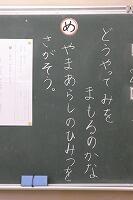 め
どうやってみを
まもるのかな
やまあらしのひみつを
さがそう。